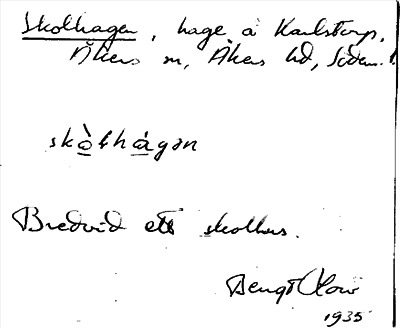 Skolhagen, hage å Karlstorp,
Åkers sn, Åkers hd, Söderm. l.
skòlhágən
Bredvid ett skolhus.
Bengt Olow
1935